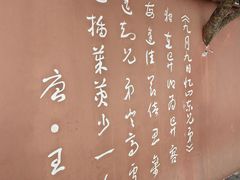 《九月九日忆山东兄弟》
独在异乡为异客
每逢佳节倍思亲
遥知兄弟登高处
遍插茱萸少一
唐·王